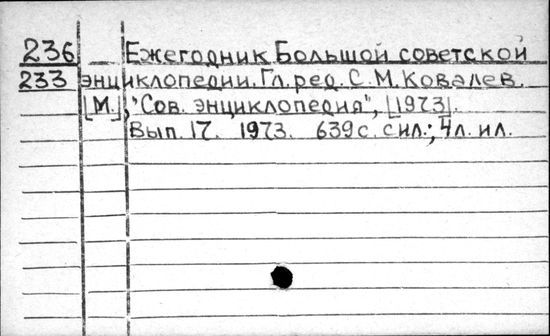 236 Ежегодник Большой советской
233 энциклопедии. Гл. ред. С. М. Ковалев.
[М.], "Сов. энциклопедия", [1973].
Вып. 17. 1973. 639 с. с ил.; 4 л. ил.